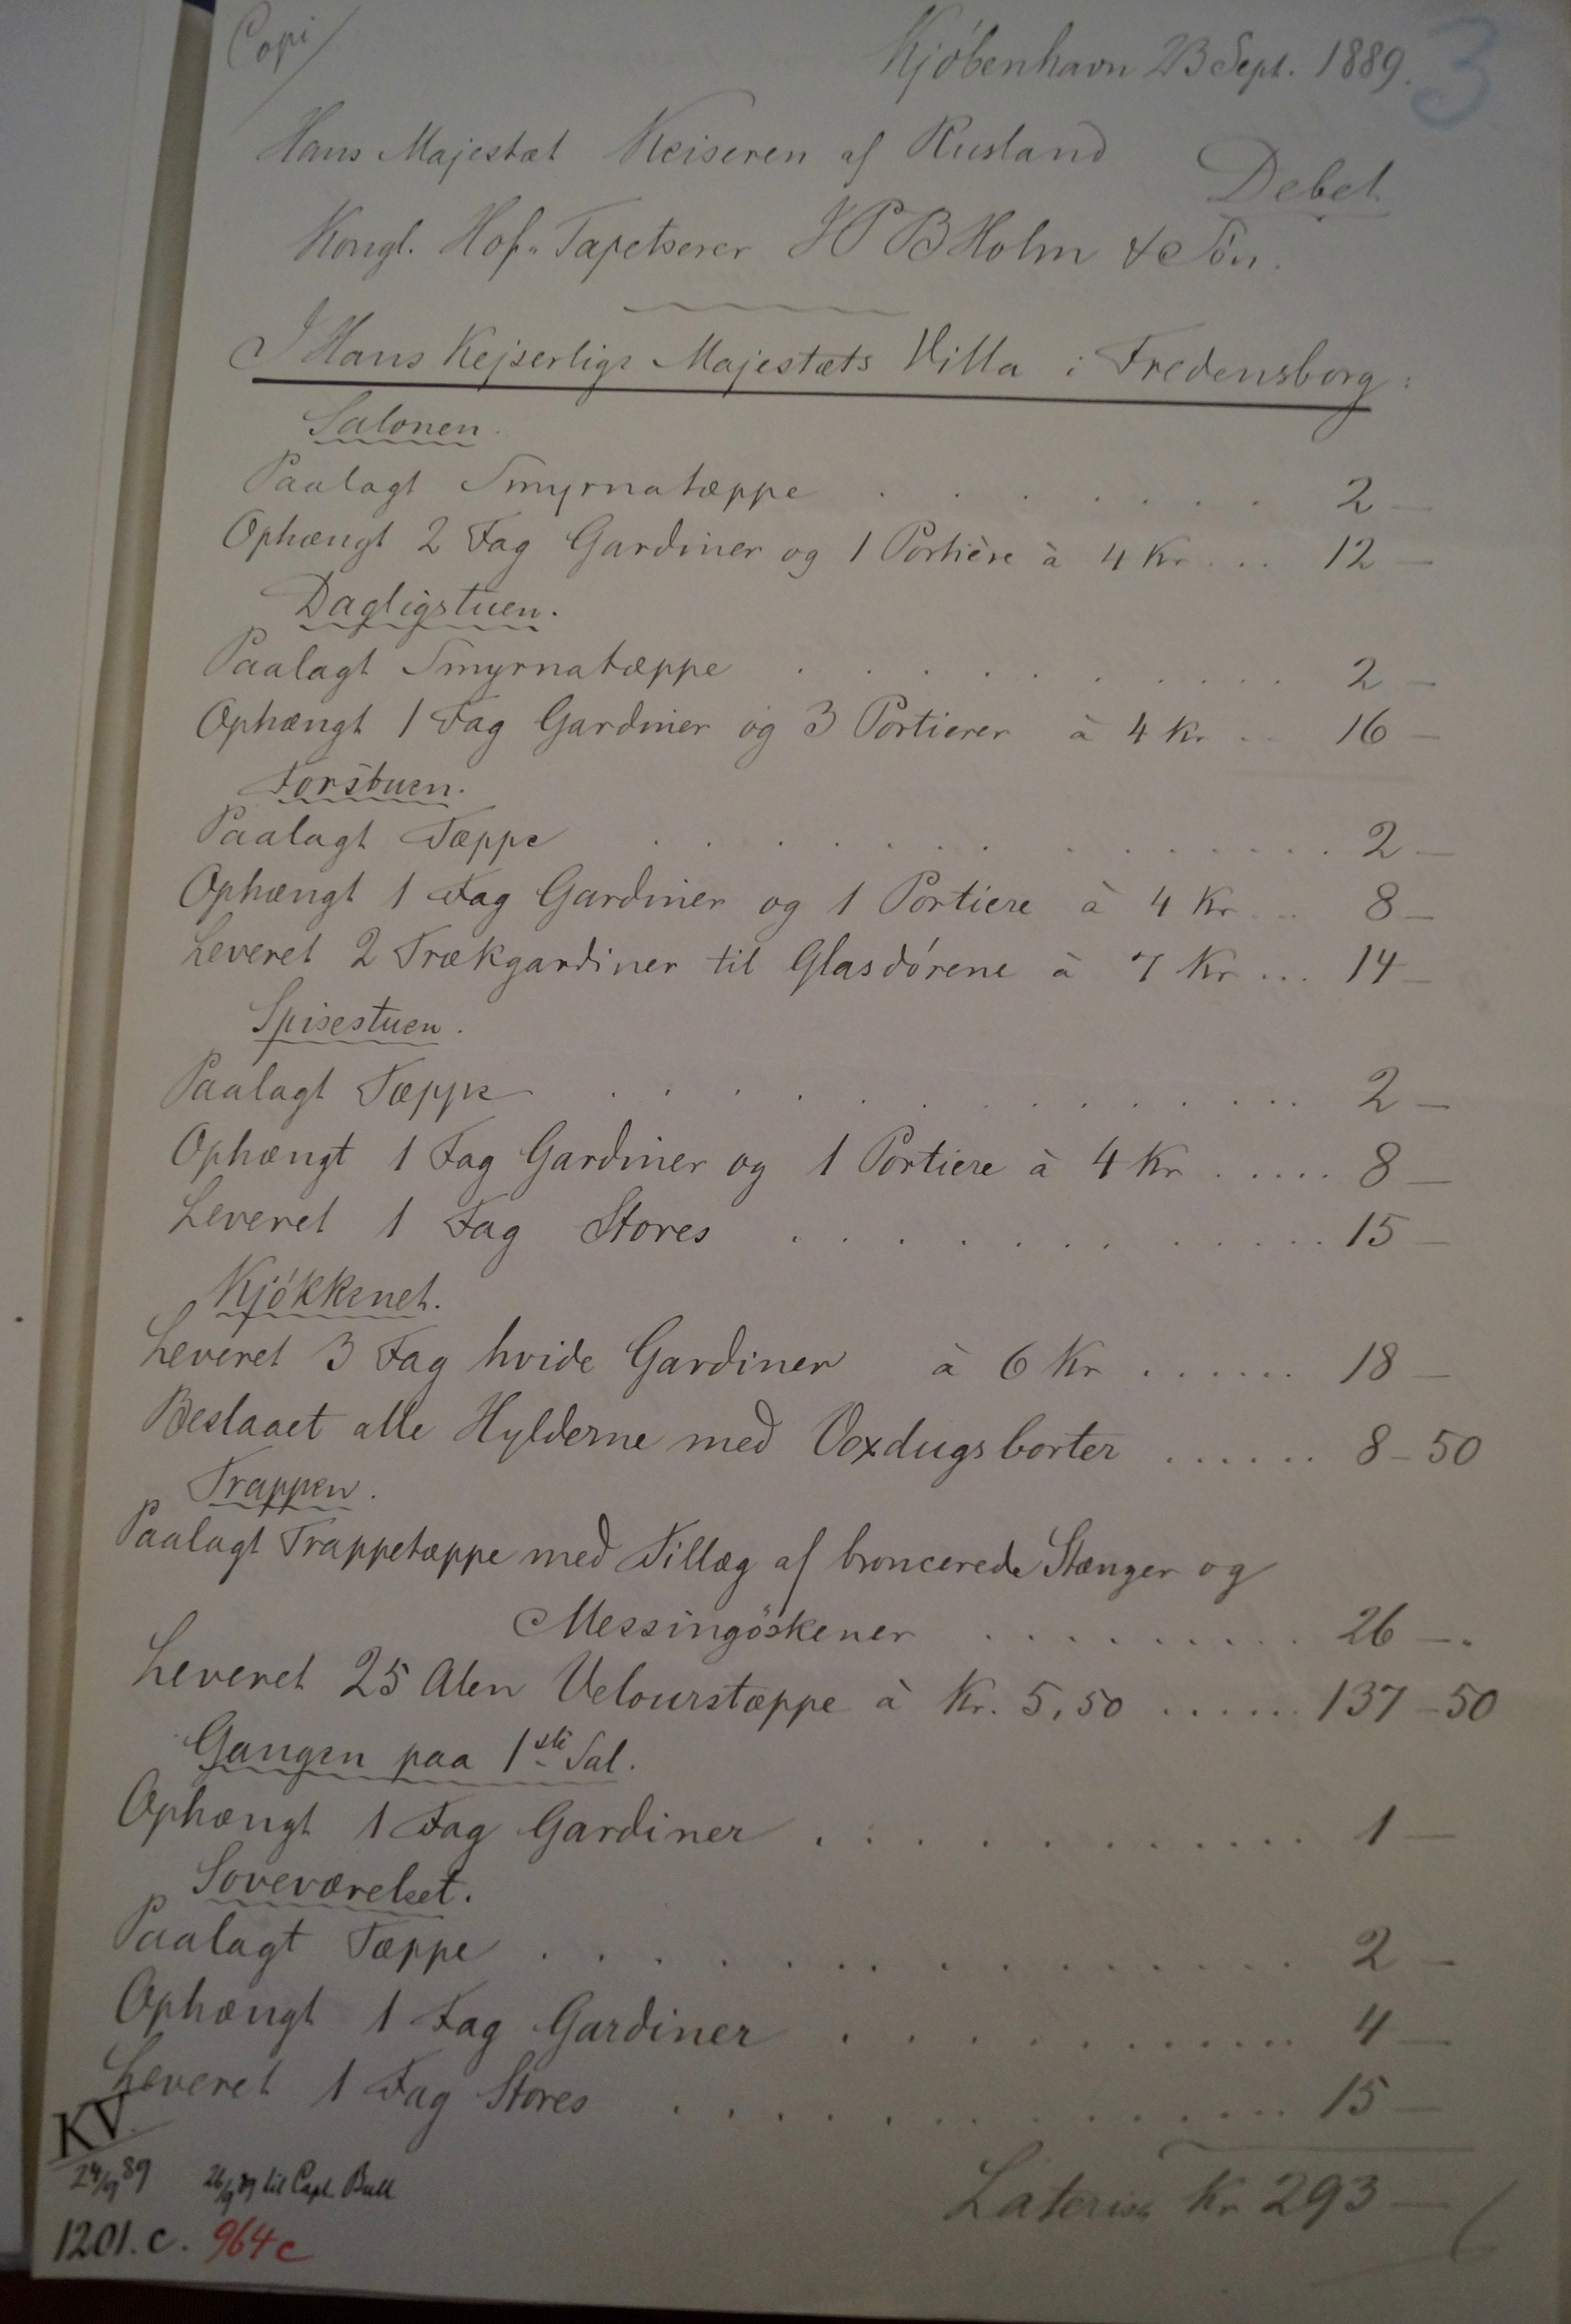 Copi
3
Kjöbenhavn 23 Sept. 1889.
Hans Majestæt Keiseren af Rusland
Debet
Kongl. Hof-Tapetserer I P B Holm & Sön.
I Hans Kejserlige Majestæts Villa i Fredensborg:
Salonen.
Paalagt Smyrnatæppe . . . . . . . . 2 —
Ophængt 2 Fag Gardiner og 1 Portière à 4 Kr . . . 12 —
Dagligstuen.
Paalagt Smyrnatæppe . . . . . . . . . . 2 —
Ophængt 1 Fag Gardiner og 3 Portierer à 4 Kr . . 16 —
Forstuen.
Paalagt Tæppe . . . . . . . . . . . . 2 —
Ophængt 1 Fag Gardiner og 1 Portiere à 4 Kr . . . 8 —
Leveret 2 Trækgardiner til Glasdörene à 7 Kr . . . 14 —
Spisestuen.
Paalagt Tæppe . . . . . . . . . . . . 2 —
Ophængt 1 Fag Gardiner og 1 Portiere à 4 Kr . . . . . 8 —
Leveret 1 Fag Stores . . . . . . . . . . . 15 —
Kjökkenet.
Leveret 3 Fag hvide Gardiner à 6 Kr . . . . . . 18 —
Beslaaet alle Hylderne med Voxdugsborter . . . . . . 8 - 50
Trappen.
Paalagt Trappetæppe med Tillæg af broncerede Stænger og
Messingöskener . . . . . . . . . 26 —.
Leveret 25 Alen Velourstæppe à Kr. 5,50 . . . . . . 137 - 50
Gangen paa 1ste Sal.
Ophængt 1 Fag Gardiner . . . . . . . . . . . 1 —
Soveværelset.
Paalagt Tæppe . . . . . . . . . . . . . . 2 —
Ophængt 1 Fag Gardiner . . . . . . . . . . 4 —
Leveret 1 Fag Stores . . . . . . . . . . . . 15 —
Lateris Kr 293 —
KV.
24/9 89 26/9 89 til Capt. Bull
1201.c. 964c